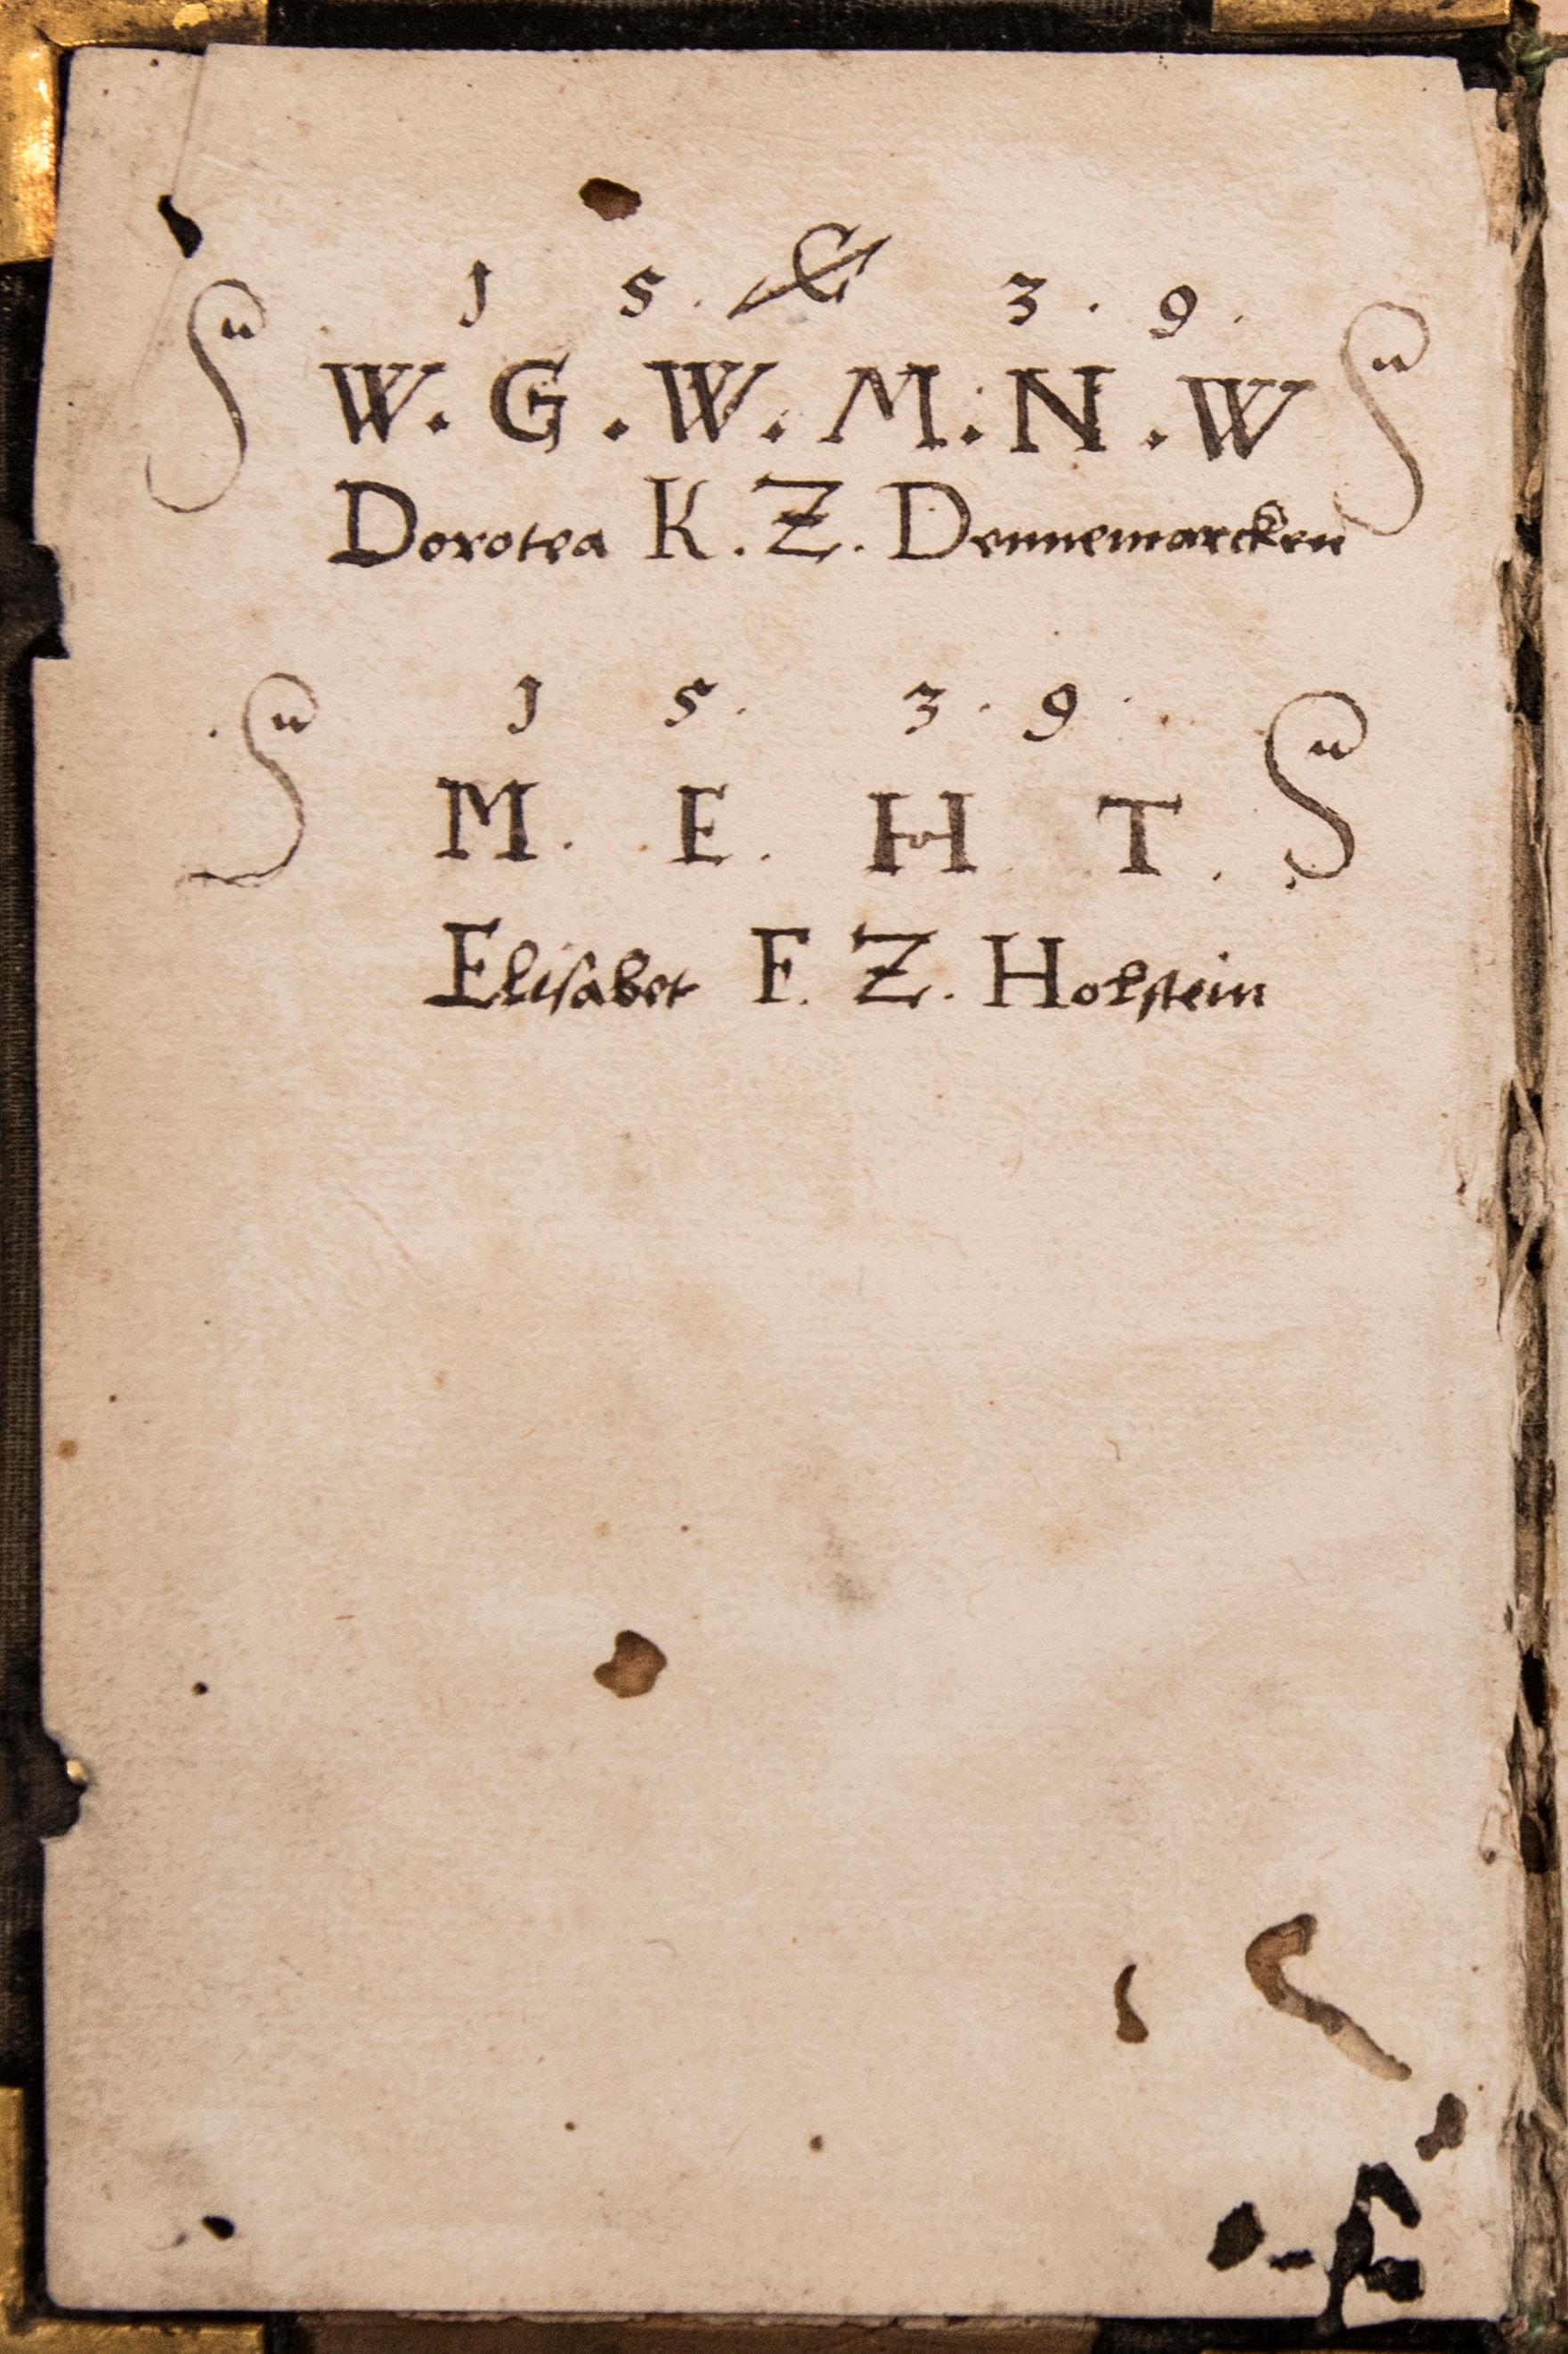 1 5 . C 3 . 9 .
W . G . W . M . N . W
Dorotea K . Z . Dennemarcken
1 5 . 3 . 9 .
M . E . H T .
Elisabet F . Z . Holstein